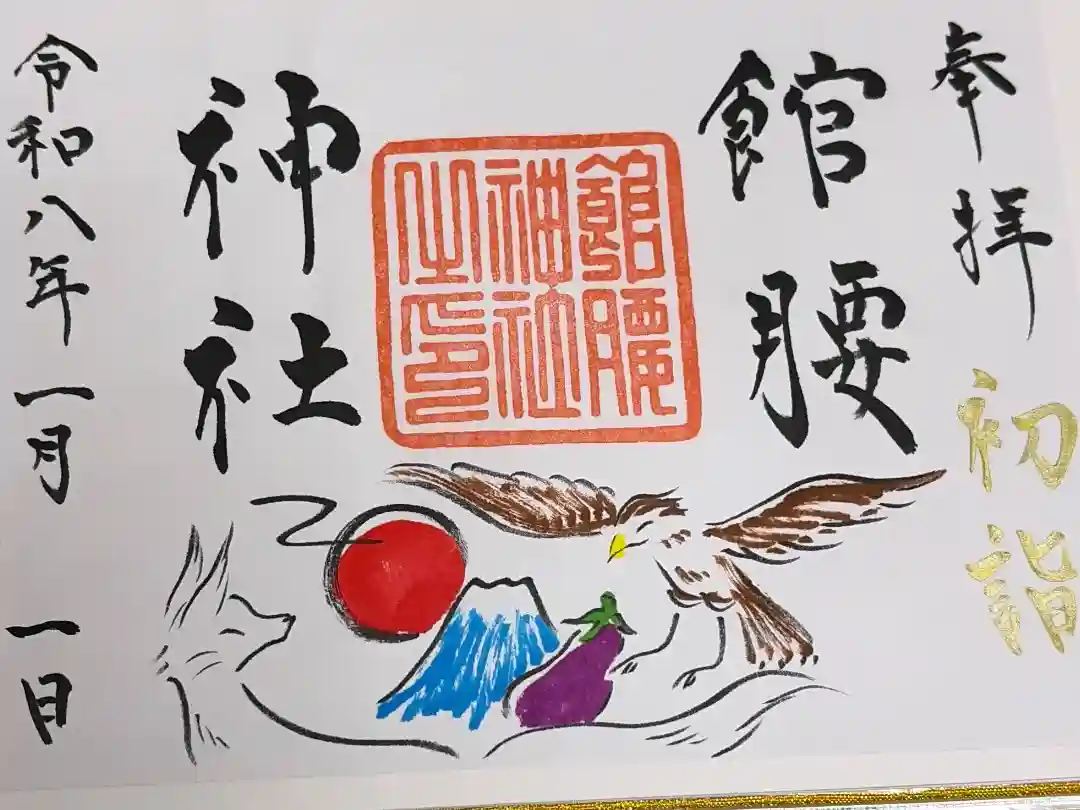 奉拝
初詣
館腰
神社
館腰
神社
之印
令和八年一月一日